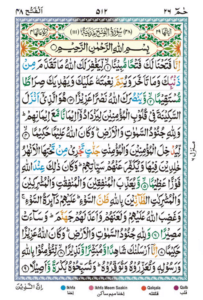 الفتح ٤٨
٥١٢
حٰمٓ ٢٦
بِسْمِ اللّٰهِ الرَّحْمٰنِ الرَّحِيْمِ
اِنَّا فَتَحْنَا لَكَ فَتْحًا مُّبِيْنًا ۙ لِّيَغْفِرَ لَكَ اللّٰهُ مَا تَقَدَّمَ مِنْ
ذَنْۢبِكَ وَمَا تَاَخَّرَ وَيُتِمَّ نِعْمَتَهٗ عَلَيْكَ وَيَهْدِيَكَ صِرَاطًا
مُّسْتَقِيْمًا ۙ وَّيَنْصُرَكَ اللّٰهُ نَصْرًا عَزِيْزًا هُوَ الَّذِيْٓ اَنْزَلَ
السَّكِيْنَةَ فِيْ قُلُوْبِ الْمُؤْمِنِيْنَ لِيَزْدَادُوْٓا اِيْمَانًا مَّعَ اِيْمَانِهِمْ
وَلِلّٰهِ جُنُوْدُ السَّمٰوٰتِ وَالْاَرْضِ وَكَانَ اللّٰهُ عَلِيْمًا حَكِيْمًا
لِّيُدْخِلَ الْمُؤْمِنِيْنَ وَالْمُؤْمِنٰتِ جَنّٰتٍ تَجْرِيْ مِنْ تَحْتِهَا الْاَنْهٰرُ
خٰلِدِيْنَ فِيْهَا وَيُكَفِّرَ عَنْهُمْ سَيِّاٰتِهِمْ وَكَانَ ذٰلِكَ عِنْدَ اللّٰهِ
فَوْزًا عَظِيْمًا وَّيُعَذِّبَ الْمُنٰفِقِيْنَ وَالْمُنٰفِقٰتِ وَالْمُشْرِكِيْنَ
وَالْمُشْرِكٰتِ الظَّآنِّيْنَ بِاللّٰهِ ظَنَّ السَّوْءِ عَلَيْهِمْ دَآئِرَةُ السَّوْءِ
وَغَضِبَ اللّٰهُ عَلَيْهِمْ وَلَعَنَهُمْ وَاَعَدَّ لَهُمْ جَهَنَّمَ وَسَآءَتْ
مَصِيْرًا وَلِلّٰهِ جُنُوْدُ السَّمٰوٰتِ وَالْاَرْضِ وَكَانَ اللّٰهُ عَزِيْزًا
حَكِيْمًا اِنَّآ اَرْسَلْنٰكَ شَاهِدًا وَّمُبَشِّرًا وَّنَذِيْرًا لِّتُؤْمِنُوْا بِاللّٰهِ
وَرَسُوْلِهٖ وَتُعَزِّرُوْهُ وَتُوَقِّرُوْهُ وَتُسَبِّحُوْهُ بُكْرَةً وَّاَصِيْلًا
Ikhfa
Ikhfa Meem Saakin
Qalqala
Qalb